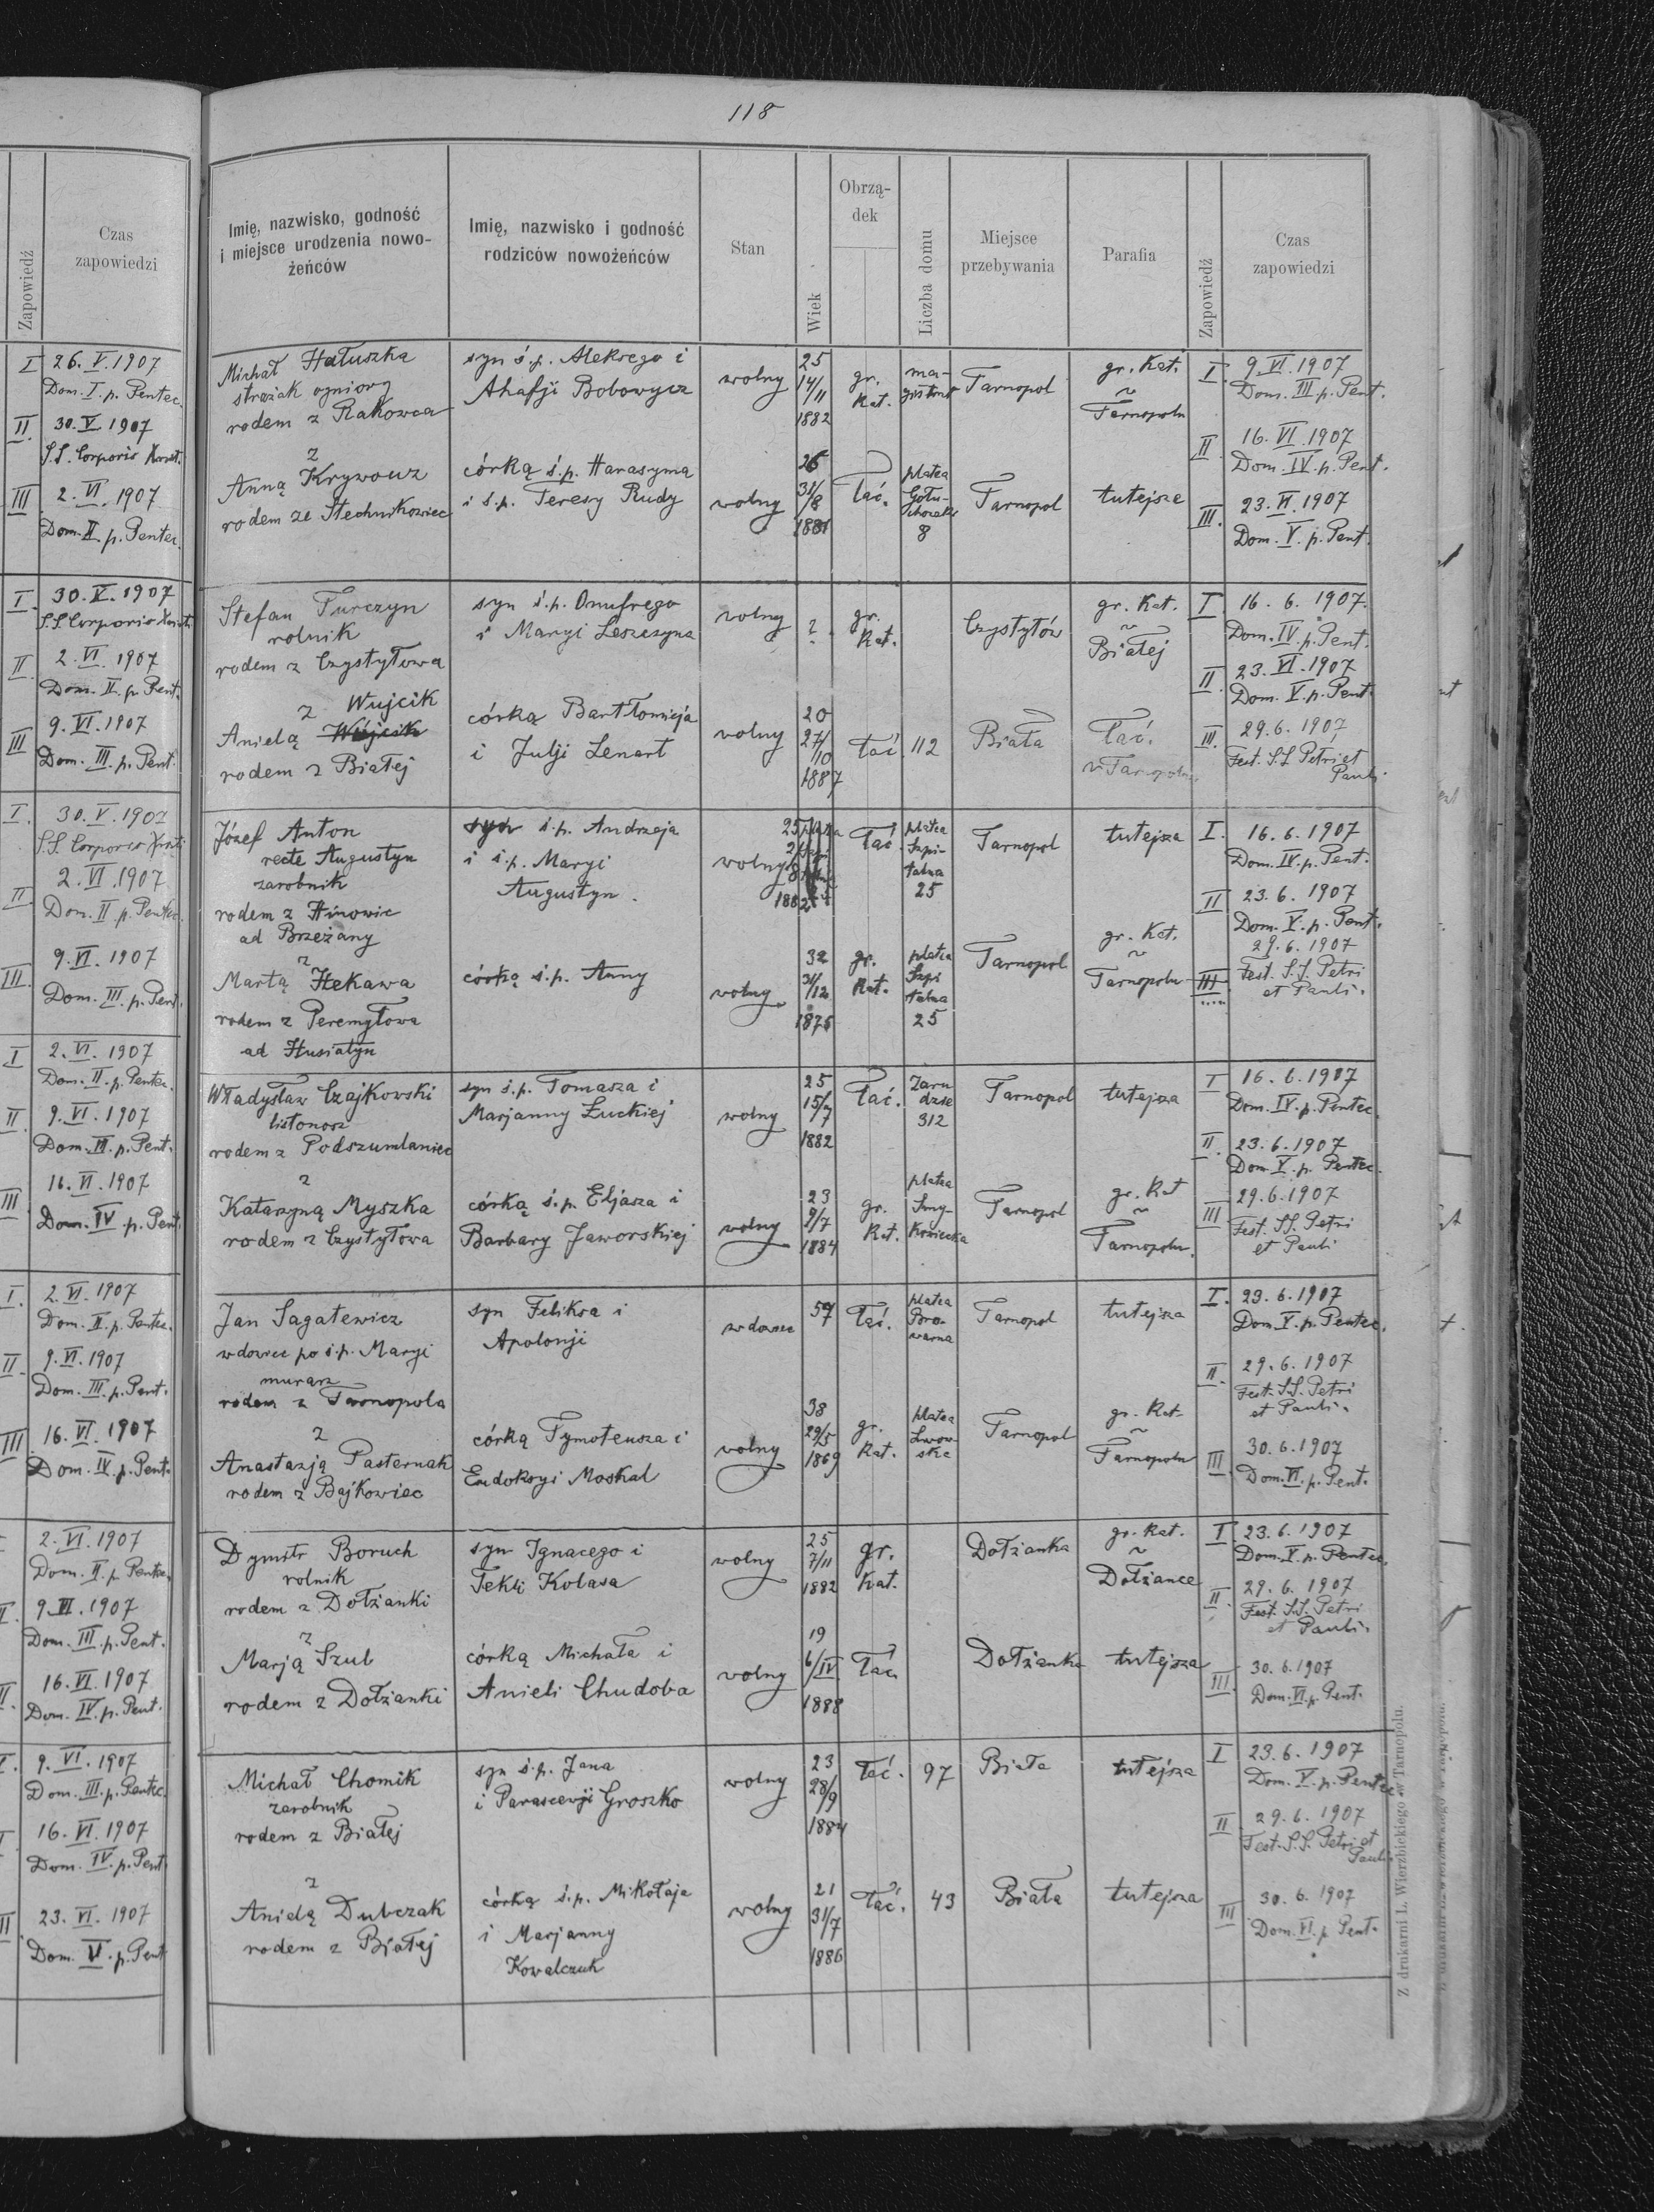 118
Zapowiedź
Czas
zapowiedzi
I 26. V. 1907
Dom. I. p. Pentec.
II 30. V. 1907
S.S. Corporis Xristi
III 2. VI. 1907
Dom. II. p. Pentec.
I. 30. V. 1907
S.S. Corporis Xristi
II 2. VI. 1907
Dom. II. p. Pent.
III 9. VI. 1907
Dom. III. p. Pent.
I. 30. V. 1907
S.S. Corporis Xristi
II 2. VI. 1907
Dom. II p. Pentec.
III. 9. VI. 1907
Dom. III. p. Pent.
I 2. VI. 1907
Dom. II. p. Pentec.
II 9. VI. 1907
Dom. III. p. Pent.
III 16. VI. 1907
Dom. IV. p. Pent.
I. 2. VI. 1907
Dom. II. p. Pentec.
II 9. VI. 1907
Dom. III. p. Pent.
III 16. VI. 1907
Dom. IV. p. Pent.
2. VI. 1907
Dom. II. p. Pentec.
9. VI. 1907
Dom. III. p. Pent.
16. VI. 1907
Dom. IV. p. Pent.
9. VI. 1907
Dom. III. p. Pentec.
16. VI. 1907
Dom. IV. p. Pent.
23. VI. 1907
Dom. V. p. Pent
Imię, nazwisko, godność
i miejsce urodzenia nowo-
żeńców
Imię, nazwisko i godność
rodziców nowożeńców
Stan
Wiek
Obrzą-
dek
Liczba domu
Miejsce
przebywania
Parafia
Zapowiedź
Czas
zapowiedzi
Michał Hałuszka
strażak ogniowy
rodem z Rakowca
syn ś.p. Aleksego i
Ahafji Bobowycz
wolny
25
14/11
1882
gr.
Kat.
ma-
gistrat
Tarnopol
gr. Kat.
~
Tarnopolu
I. 9. VI. 1907
Dom. III. p. Pent.
II 16. VI. 1907
Dom. IV. p. Pent.
z
Anną Krywouz
rodem ze Stechnikowiec
córką ś.p. Harasyma
i ś.p. Teresy Rudy
wolny
26
31/8
1881
łać.
platea
Gołu-
8
Tarnopol
tutejsze
III. 23. VI. 1907
Dom. V. p. Pent.
Stefan Turczyn
rolnik
rodem z Czystyłowa
syn ś.p. Onufrego
i Maryi Leszczyna
wolny
?
gr.
Kat.
Czystyłów
gr. Kat.
~
Białej
I 16. 6. 1907.
Dom. IV. p. Pent.
II 23. VI. 1907
Dom. V. p. Pent.
z Wujcik
Anielą Wójcik
rodem z Białej
córką Bartłomieja
i Julji Lenart
wolny
20
27/10
1887
łać
112
Biała
łać.
w Tarnopolu
III. 29. 6. 1907
Fest. S.S. Petri et
Pauli
Józef Anton
recte Augustyn
zarobnik
rodem z Hinowic
ad Brzeżany
syn ś.p. Andrzeja
i ś.p. Maryi
Augustyn.
wolny
25
1882
łać
platea
Szpi-
talna
25
Tarnopol
tutejsza
I. 16. 6. 1907
Dom. IV. p. Pent.
II 23. 6. 1907
Dom. V. p. Pent.
z
Martą Hekawa
rodem z Peremyłowa
ad Husiatyn
córką ś.p. Anny
wolny
32
31/12
1875
gr.
Kat.
platea
Szpi
talna
25
Tarnopol
gr. Kat.
~
Tarnopolu
III 29. 6. 1907
Fest. S.S. Petri
et Pauli.
Władysław Czajkowski
listonosz
rodem z Podszumlaniec
syn ś.p. Tomasza i
Marjanny Łuckiej
wolny
25
15/7
1882
łać.
Zaru
dzie
312
Tarnopol
tutejsza
I 16. 6. 1907
Dom. IV. p. Pentec.
II 23. 6. 1907
Dom. V. p. Pentec.
z
Katarzyną Myszka
rodem z Czystyłowa
córką ś.p. Eljasza i
Barbary Jaworskiej
wolny
23
9/7
1884
gr.
Kat.
platea
Smy-
kowiecka
Tarnopol
gr. Kat
~
Tarnopolu.
III 29. 6. 1907
Fest. SS. Petri
et Pauli
Jan Sagatewicz
wdowiec po ś.p. Maryi
murarz
rodem z Tarnopola
syn Feliksa i
Apolonji
wdowiec
57
łać.
platea
Bro-
warna
Tarnopol
tutejsza
I. 23. 6. 1907
Dom. V. p. Pentec.
II. 29. 6. 1907
Fest. S.S. Petri
et Pauli.
z
Anastazją Pasternak
rodem z Bajkowiec
córką Tymoteusza i
Eudoksyi Moskal
wolny
38
29/5
1869
gr.
Kat.
platea
Lwow-
ska
Tarnopol
gr. Kat.
~
Tarnopolu
III 30. 6. 1907
Dom. VI. p. Pent.
Dymitr Boruch
rolnik
rodem z Dołżanki
syn Ignacego i
Tekli Kolasa
wolny
25
7/11
1882
gr.
Kat.
Dołżanka
gr. Kat.
~
Dołżance
I 23. 6. 1907
Dom. V. p. Pentec.
II 29. 6. 1907
Fest. S.S. Petri
et Pauli.
z
Marją Szul
rodem z Dołżanki
córką Michała i
Anieli Chudoba
wolny
19
6/IV
1888
łać
Dołżanka
tutejsza
III 30. 6. 1907
Dom. VI. p. Pent.
Michał Chomik
zarobnik
rodem z Białej
syn ś.p. Jana
i Parascewji Groszko
wolny
23
28/9
1884
łać.
97
Biała
tutejsza
I 23. 6. 1907
Dom. V. p. Pentec
II 29. 6. 1907
Fest. S.S. Petri et
Pauli.
z
Anielą Dubczak
rodem z Białej
córką ś.p. Mikołaja
i Marjanny
Kowalczuk
wolny
21
31/7
1886
łać.
43
Biała
tutejsza
III 30. 6. 1907
Dom. VI. p. Pent.
Z drukarni L. Wierzbickiego w Tarnopolu.